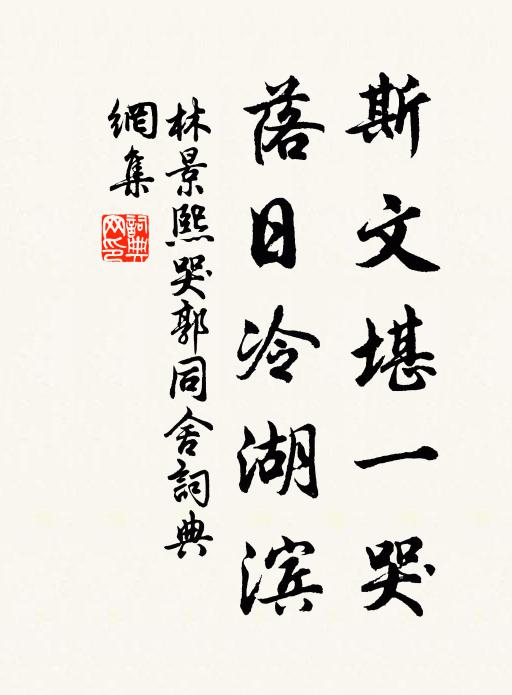 斯文堪一哭
落日冷湖滨
林景熙哭郭同舍詞典
網集
詞典網印